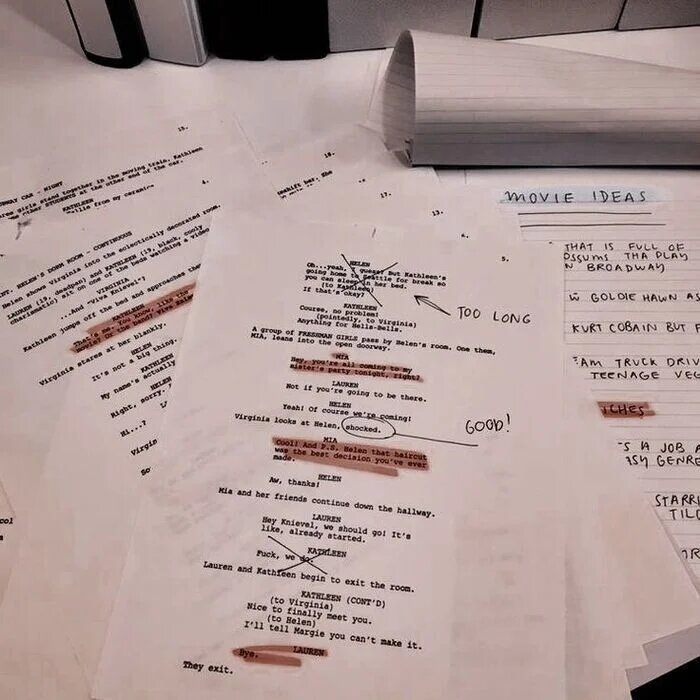 15.
WAY CAR - NIGHT
girls stand together in the moving train. Kathleen
other STUDENTS at the other end of the car.
KATHLEEN
from my ceramic
4.
HELEN'S DORM ROOM - CONTINUOUS
Helen shows Virginia into the eclectically decorated room.
LAUREN (19, deadpan) and KATHLEEN (19, black, cooly
charismatic) sit on one of the beds watching a video.
VIRGINIA
...And "Viva Knievel"?
Kathleen jumps off the bed and approaches the
KATHLEEN
That's me. You know, like the
movie? On the bed? Viva
Virginia stares at her blankly.
HELEN
It's not a big thing.
KATHLEEN
My name's actually
HELEN
Right, sorry.
Hi...?
Virgin
So
16.
17.
13.
5.
HELEN
Oh...yeah, I guess? But Kathleen's
going home to Seattle for break so
you can sleep in her bed.
(to Kathleen)
If that's okay?
TOO LONG
KATHLEEN
Course, no problem!
(pointedly, to Virginia)
Anything for Hells-Bells.
A group of FRESHMAN GIRLS pass by Helen's room. One them,
MIA, leans into the open doorway.
MIA
Hey, you're all coming to my
sister's party tonight, right?
LAUREN
Not if you're going to be there.
HELEN
Yeah! Of course we're coming!
Virginia looks at Helen, shocked.
GOOD!
MIA
Cool! And P.S. Helen that haircut
was the best decision you've ever
made.
HELEN
Aw, thanks!
Mia and her friends continue down the hallway.
LAUREN
Hey Knievel, we should go! It's
like, already started.
KATHLEEN
Fuck, we do.
Lauren and Kathleen begin to exit the room.
KATHLEEN (CONT'D)
(to Virginia)
Nice to finally meet you.
(to Helen)
I'll tell Margie you can't make it.
LAUREN
Bye.
They exit.
MOVIE IDEAS
THAT IS FULL OF
OSSUMS THA PLAY
N BROADWAY
GOLDIE HAWN AS
KURT COBAIN BUT
AM TRUCK DRIV
TEENAGE VEG
ICHES
'S A JOB A
GENRE
STARRI
TILD